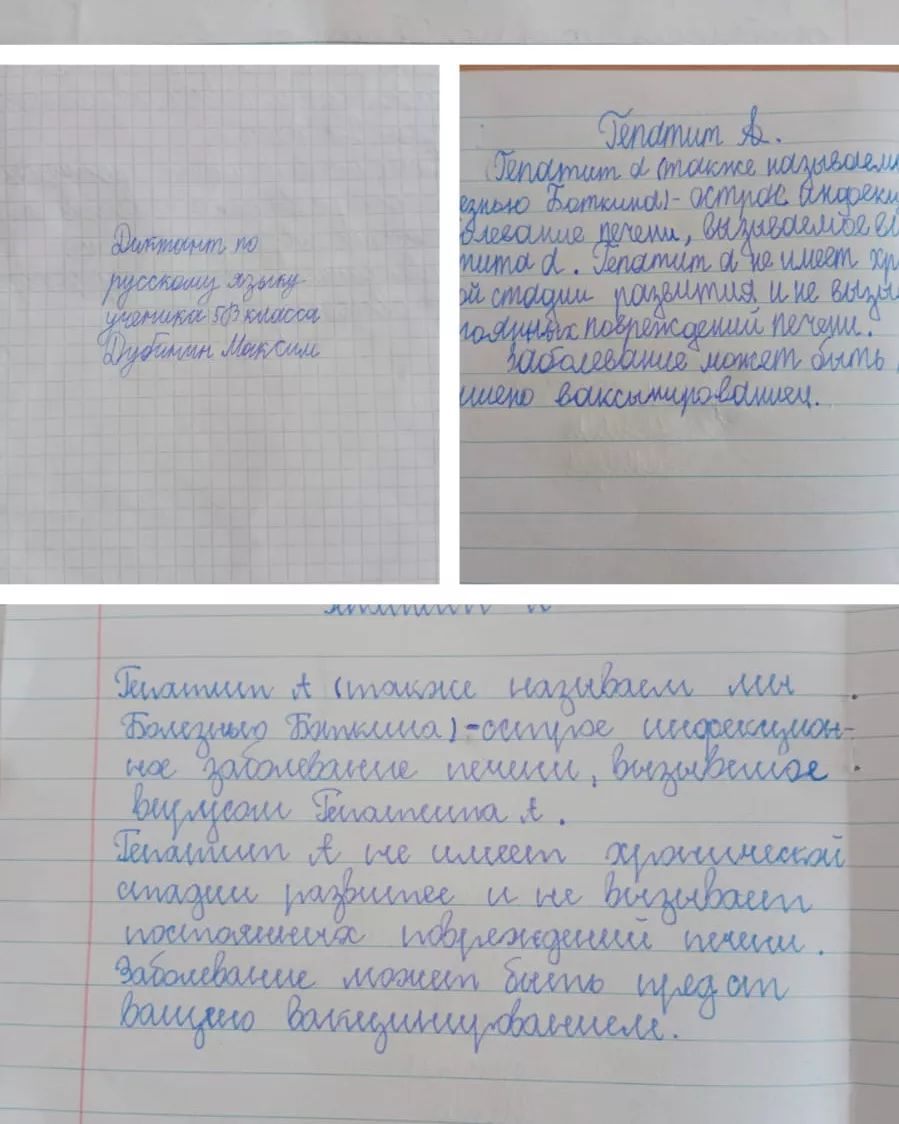 Диктант по
русскому языку
ученика 5В класса
Дубинин Максим
Гепатит А.
Гепатит а (также называем
езнью Боткина)- острое инфекц
олевание печени, вызываемое в
тита а. Гепатит а не имеет хр
ой стадии развития и не вызы
тоянных повреждений печени.
Заболевание может быть
щено ваксынированием.
Гепатит А (также называем ми
Болезнью Баткина)-острое инфекцион-
ное заболевание печени, вызывемое
вирусом Гепатита А.
Гепатит А не имеет хронической
стадии развитее и не вызывает
постоянних повреждений печени.
Заболевание может быть предот
ващено вакцинированием.